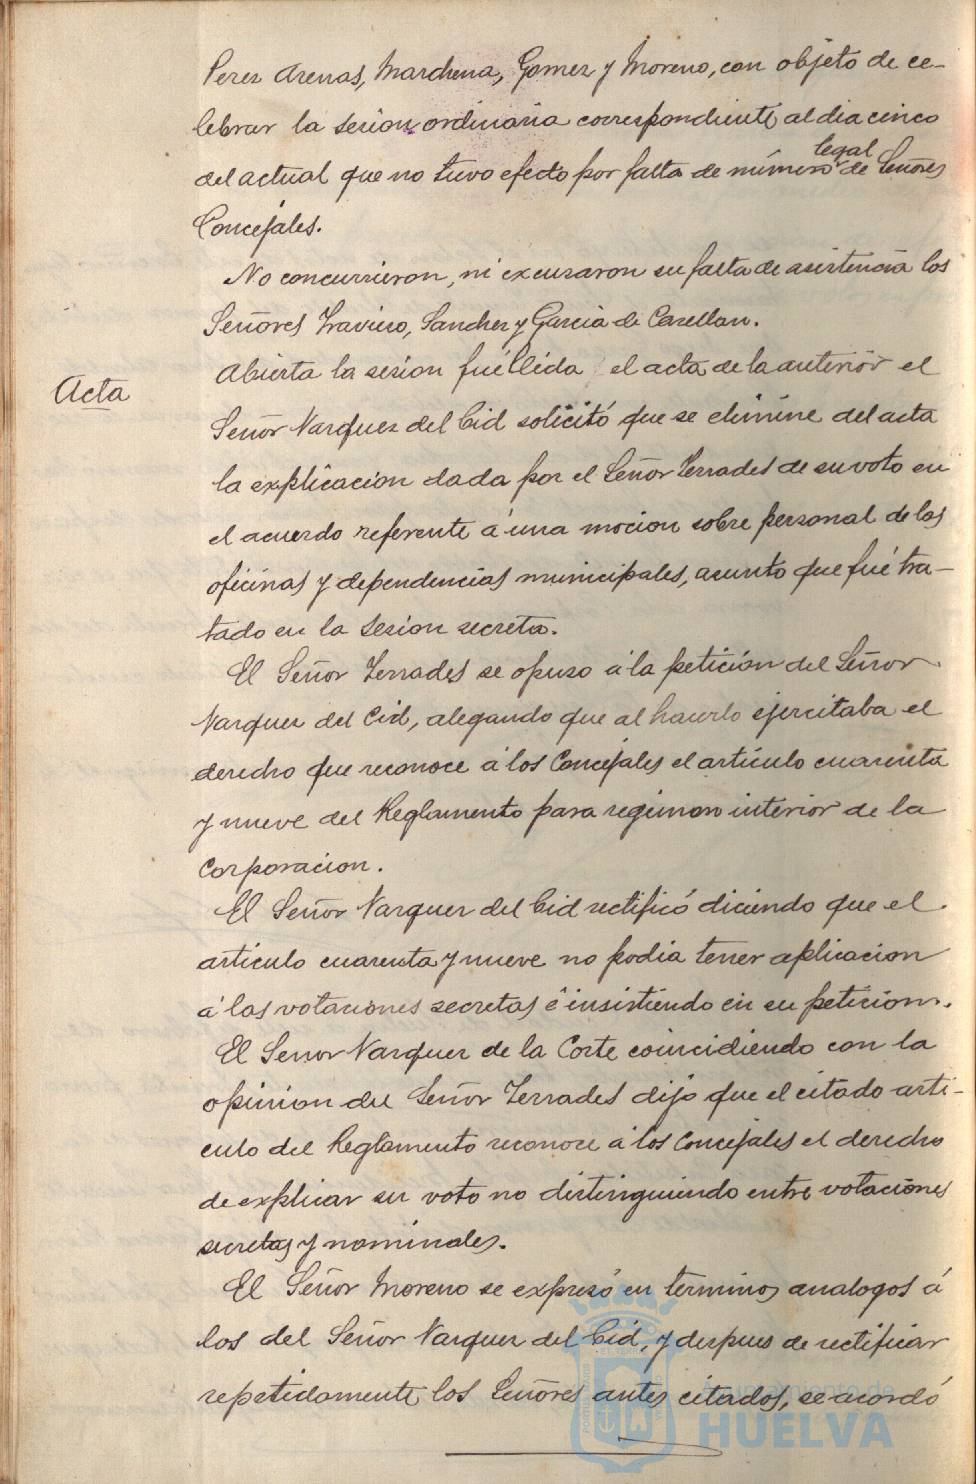 Perez Arenas, Marchena, Gomez y Moreno, con objeto de ce-
lebrar la sesion ordinaria correspondiente al dia cinco
del actual que no tuvo efecto por falta de número legal de Señores
Concejales.
No concurrieron, ni excusaron su falta de asistencia los
Señores Travieso, Sanchez y Garcia de Casellan.
Acta
Abierta la sesion fué llida el acta de la anterior el
Señor Vazquez del Cid solicitó que se elimine del acta
la explicacion dada por el Señor Terrades de su voto en
el acuerdo referente á una mocion sobre personal de las
oficinas y dependencias municipales, asunto que fué tra-
tado en la sesion secreta.
El Señor Terrades se opuso á la petición del Señor
Vazquez del Cid, alegando que al hacerlo ejercitaba el
derecho que reconoce á los Concejales el artículo cuarenta
y nueve del Reglamento para regimen interior de la
Corporacion.
El Señor Vazquez del Cid rectificó diciendo que el
articulo cuarenta y nueve no podia tener aplicacion
á las votaciones secretas é insistiendo en su peticion.
El Senor Vazquez de la Corte coincidiendo con la
opinion del Señor Terrades dijo que el citado arti-
culo del Reglamento reconoce á los Concejales el derecho
de explicar su voto no distinguiendo entre votaciones
secretas y nominales.
El Señor Moreno se expresó en terminos analogos á
los del Señor Vazquez del Cid, y despues de rectificar
repetidamente los Señores antes citados, se acordó
Ayuntamiento de
HUELVA